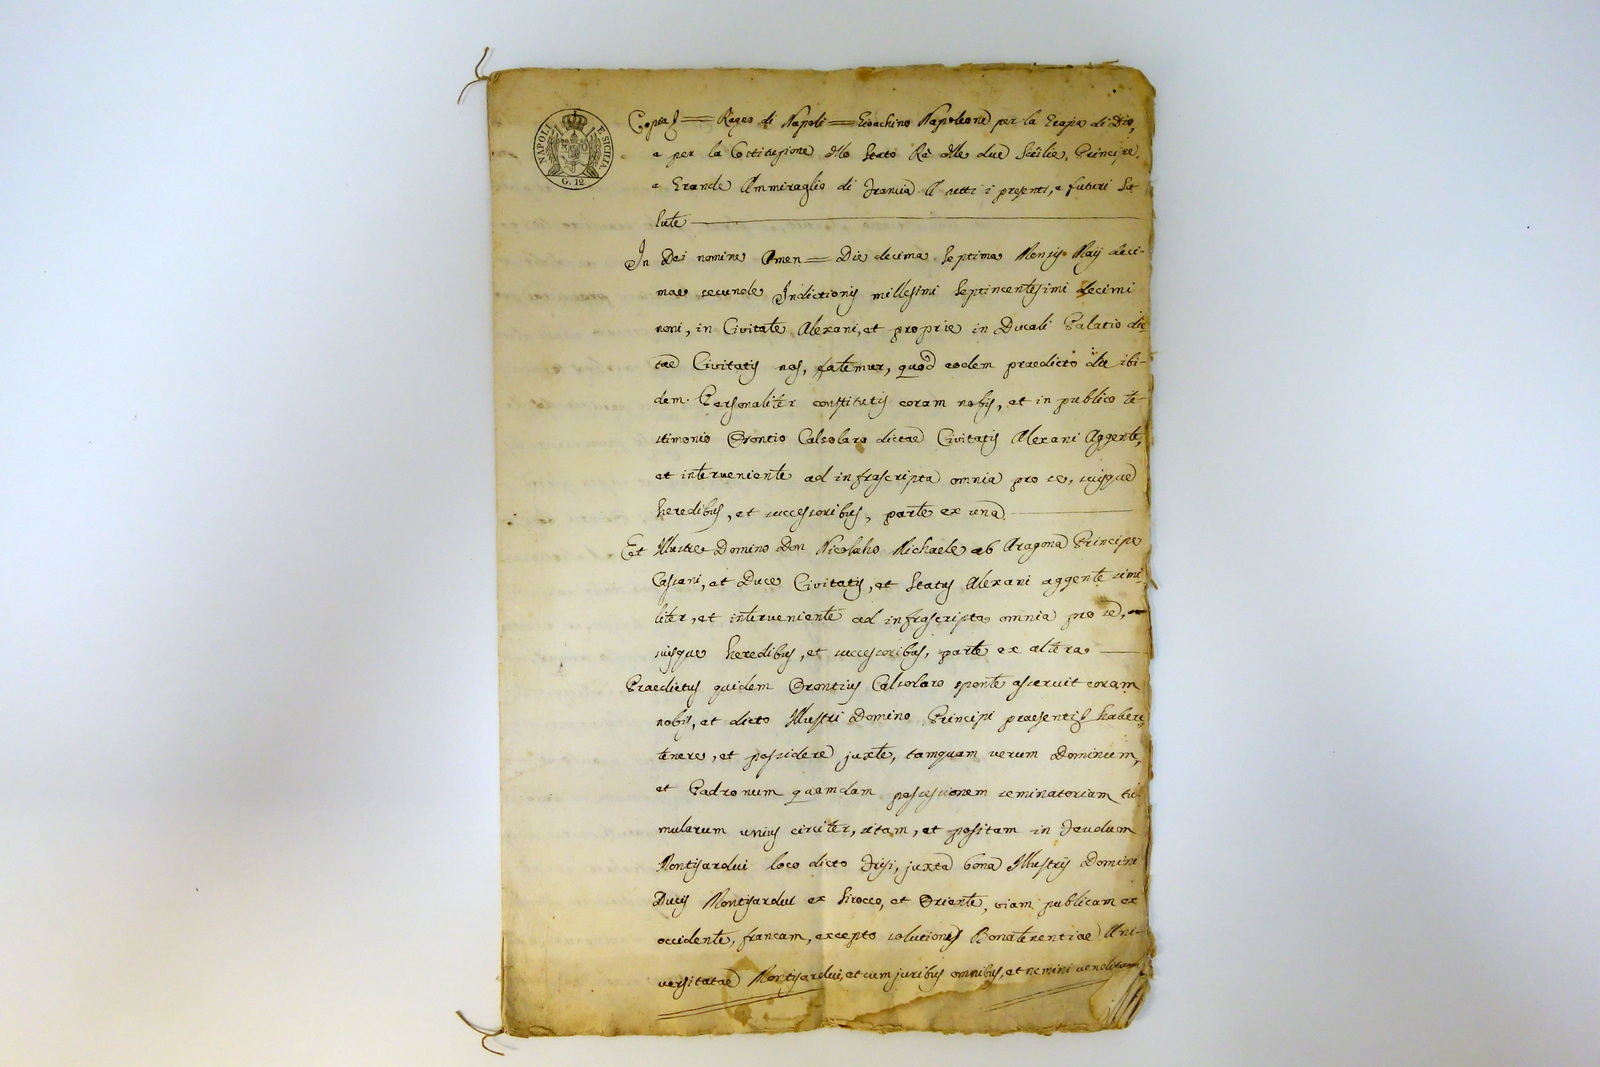 NAPOLI E SICILIA
G. 12
Copia = Regno di Napoli = Gioachino Napoleone per la Grazia di Dio,
e per la Costituzione dello Stato Rè delle due Sicilie, Principe,
e Grande Ammiraglio di Francia A tutti i presenti, e futuri Sa
lute
In Dei nomine Amen = Die decima septima Mensis Maij deci-
mae secunde Indictionis millesimi septincentesimi decimi
noni, in Civitate Alexani, et proprie in Ducali Palatio dic
tae Civitatis nos, fatemur, quod eodem praedicto die ibi-
dem. Personaliter constitutis coram nobis, et in publico te-
stimonio Orontio Calsolaro dictae Civitatis Alexani Aggente,
et interveniente ad infrascripta omnia pro se, suisque
heredibus, et successoribus, parte ex una
Et Illustre Domino Don Nicolaho Michaele ab Aragona Principe
Cassani, et Duce Civitatis, et Status Alexani aggente simi
liter, et interveniente ad infrascripta omnia pro se,
suisque heredibus, et successoribus, parte ex altera
Praedictus quidem Orontius Calsolaro sponte asseruit coram
nobis, et dicto Illustri Domino Principi praesenti habere,
tenere, et possidere juste, tamquam verum Dominum,
et Padronum quamdam possessionem seminatoriam tu-
mularum unius circiter, sitam, et positam in Feudum
Montisardui loco dicto Frisi, juxta bona Illustris Domini
Ducis Montisardui ex Sirocco, et Oriente, viam publicam ex
occidente, francam, excepto solutionis Bonatenentiae Uni-
versitatae Montisardui, et cum juribus omnibus, et nemini venditam